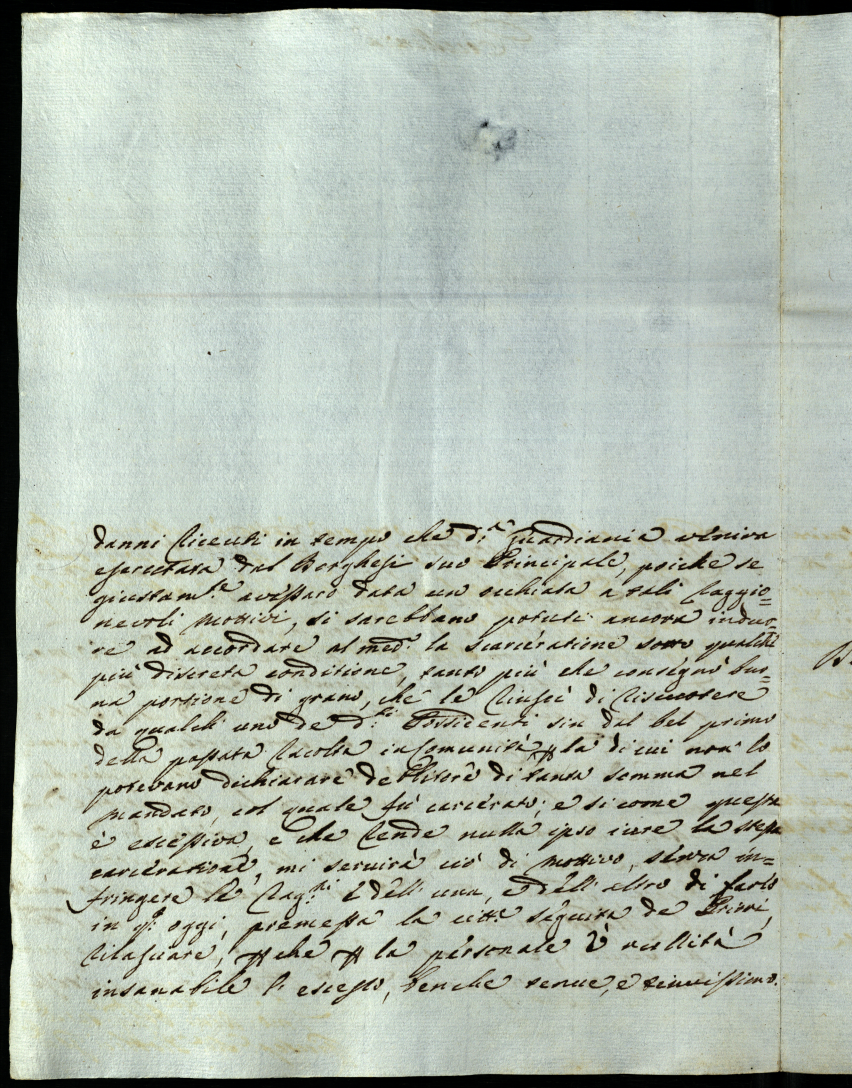 danni ricevuti in tempo che d.ª Guardiania veniva
esercitata dal Borghesi suo Principale, poiche se
giustam.e avessaro data un occhiata a tali raggio=
nevoli mottivi, si sarebbano potuti ancora indur=
re ad accordare al med.º la scarceratione sotto qualche
più discreta conditione, tanto più che consegnò buo=
na portione di grano, che le riuscì di riscuotere
da qualch' uno de d.ti Possidenti sin dal bel primo
della passata racolta in Comunità p la di cui non lo
potevano dichiarare debitore di tanta somma nel
mandato, col quale fù carcerato; e si come questa
è eccessiva, e che rende nulla ipso iure la stessa
carceratione, mi servirà ciò di mottivo, senza in=
fringere le rag.ni e dell' una, e dell' altro di farlo
in q.º oggi, premessa la citt.e seguita de Primi,
rilasciare, p che p la personale è nullità
insanabile l' eccesso, benche tenue, e tenuissimo.